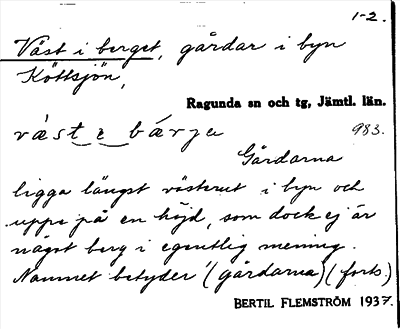 1-2.
Väst i berget, gårdar i byn
Köttsjön,
Ragunda sn och tg, Jämtl. län.
våst i bávrja 983.
Gårdarna
ligga längst västerut i byn och
uppe på en höjd, som dock ej är
något berg i egentlig mening.
Namnet betyder '(gårdarna) (forts.)
BERTIL FLEMSTRÖM 1937.